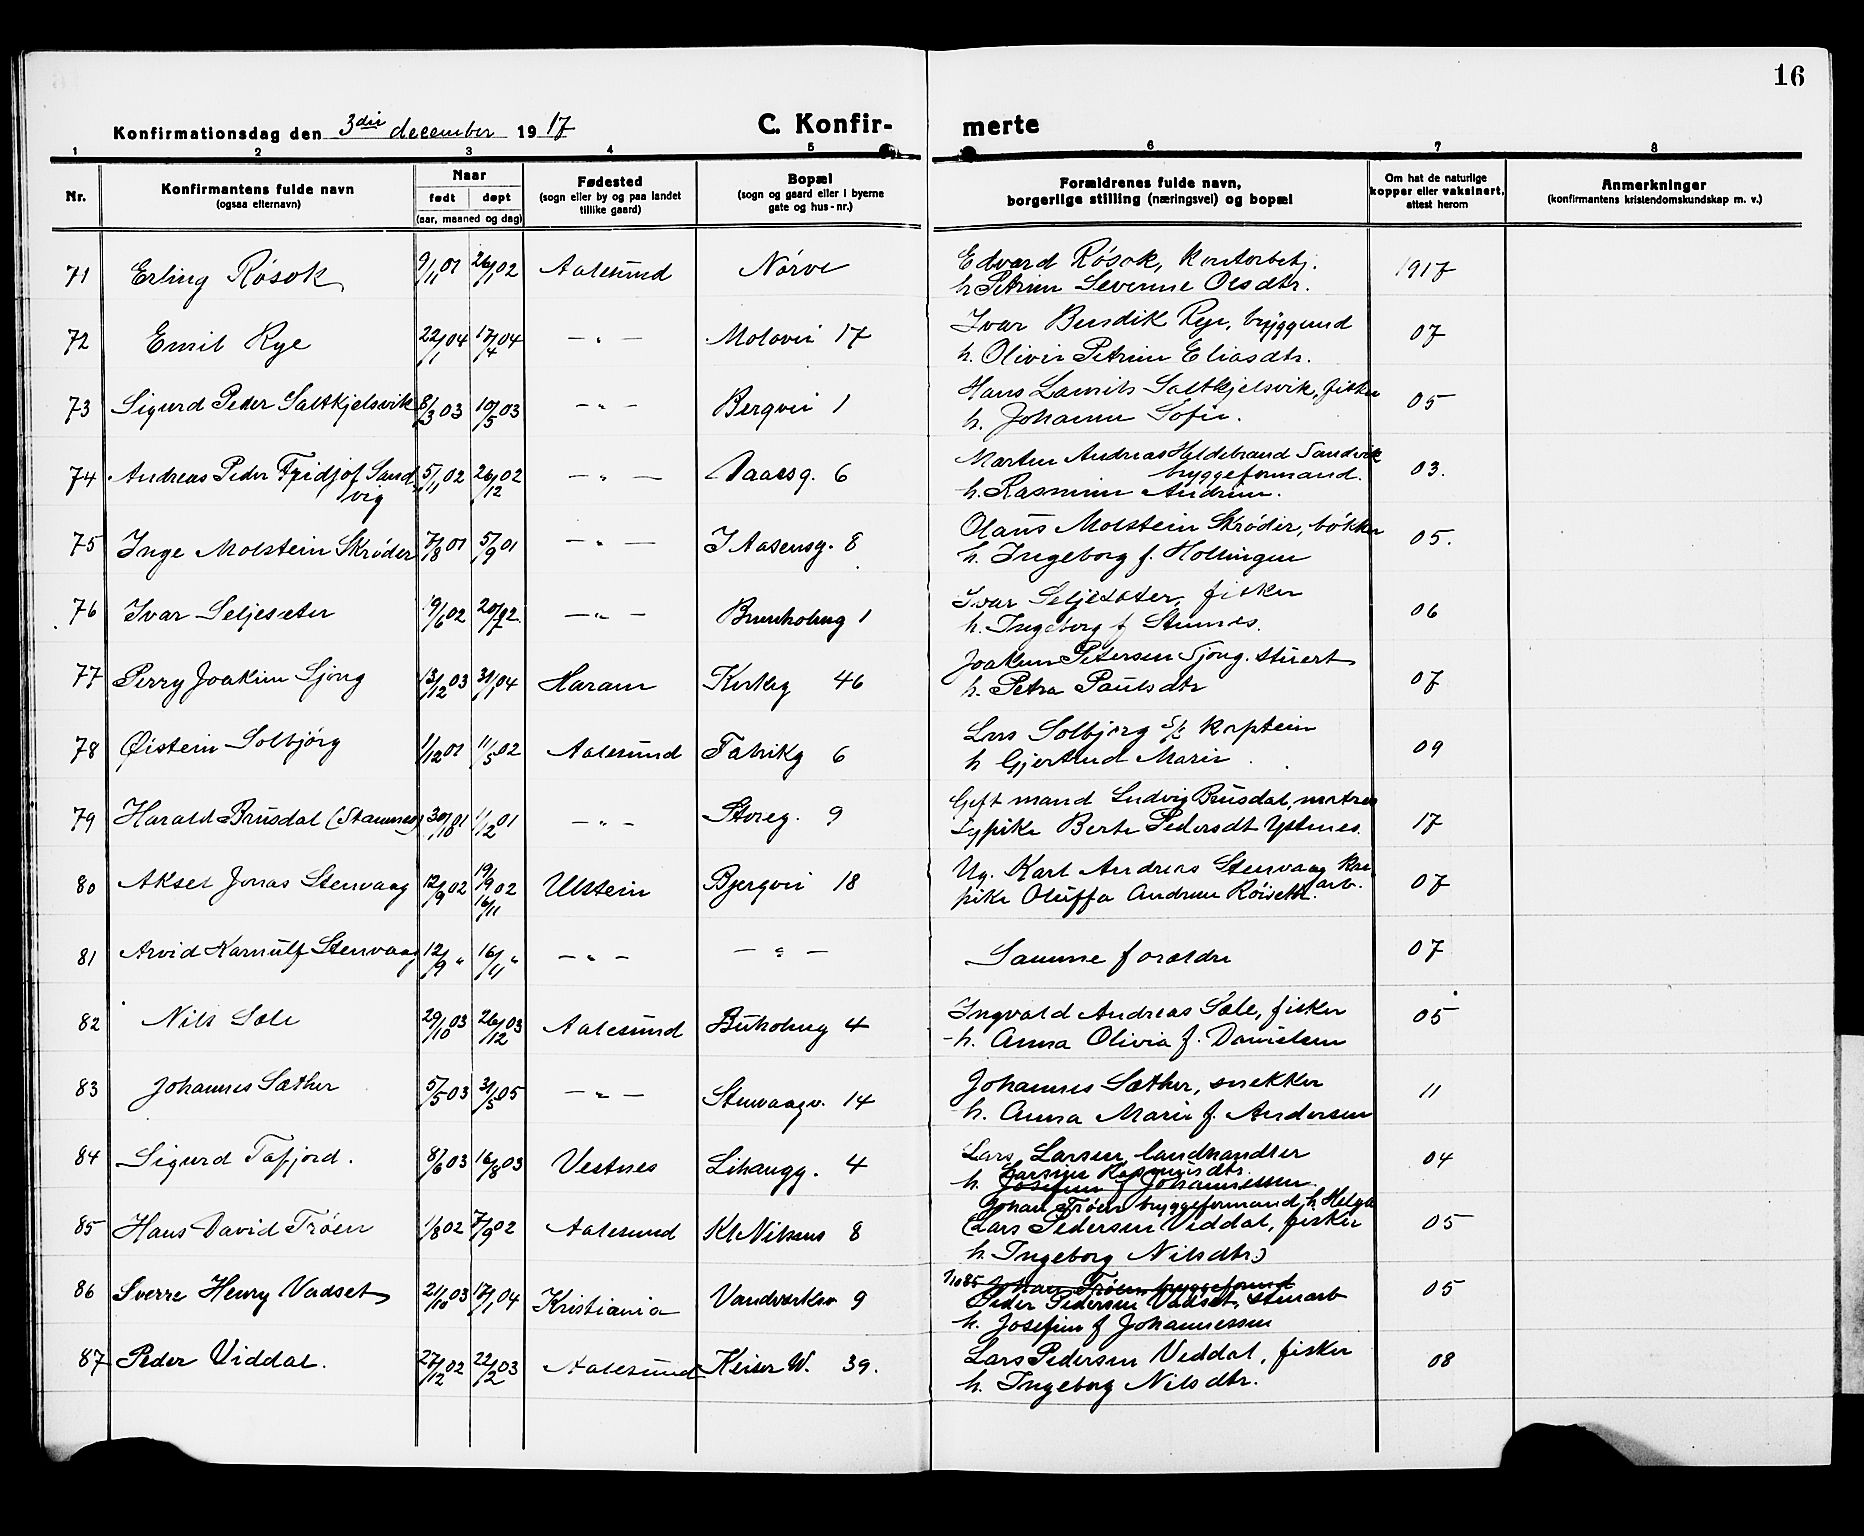 16
Konfirmationsdag den 3die december 1917
C. Konfirmerte
1 2 3 4 5 6 7 8
Nr.
Konfirmantens fulde navn
(ogsaa efternavn)
Naar
født døpt
(aar, maaned og dag)
Fødested
(sogn eller by og paa landet
tillike gaard)
Bopæl
(sogn og gaard eller i byerne
gate og hus-nr.)
Forældrenes fulde navn,
borgerlige stilling (næringsvei) og bopæl
Om hat de naturlige
kopper eller vaksinert,
attest herom
Anmerkninger
(konfirmantens kristendomskundskap m. v.)
71 Erling Røsok 9/11 01 26/1 02 Aalesund Nørve Edvard Røsok, kontorbetj. 1917
h. Petrine Severine Olsdtr.
72 Emil Rye 22/1 04 17/4 04 — " — Moloven 17 Ivar Bendik Rye, 07
h. Olivie Petrine Eliasdtr.
73 Sigurd Peder Saltkjelsvik 8/3 03 10/5 03 — " — Bergvei 1 Hans Laurits Saltkjelsvik, fisker 05
h. Johanne Sofie.
74 Andreas Peder Fridjof Sand 5/11 02 26/12 02 — " — Daaesg. 6 Martin Andreas Hildebrand Sandvik 03.
vig bryggeformand.
h. Rasmine Andrine.
75 Inge Molstein Skrøder 7/8 01 5/9 01 — " — I Aasensg. 8 Olaus Molstein Skrøder, bøkker 05.
h. Ingeborg f. Hollingen
76 Ivar Seljesæter 19/6 02 20/7 02 — " — Brunholmg 1 Ivar Seljesæter, fisker 06
h. Ingeborg f Stennes.
77 Perry Joakim Sjong 13/12 03 31/1 04 Haram Kirkeg 46 Joakim Petersen Sjong. stuert 07
h. Petra Paulsdtr
78 Øistein Solbjørg 1/12 01 11/5 02 Aalesund Fabrikg 6 Lars Solbjørg s/s kaptein 09
h Gjertrud Marie
79 Harald Brusdal (Stamnes) 30/10 01 1/12 01 — " — Storeg. 9 Gift mand Ludvig Brusdal, matros 17
og pike Berte Pedersdt Ystenes
80 Aksel Jonas Stenvaag 12/9 02 19/9 02 16/11 Ulstein Bjergvei 18 Ug. Karl Andreas Stenvaag 07
arb.
pike Oluffa Andrine Røiseth.
81 Arvid Karnulf Stenvaag 12/9 " 16/11 " — " — — " — Samme forældre 07
82 Nils Sæle 29/10 03 26/12 03 Aalesund Buholmg 4 Ingvald Andreas Sæle, fisker 05
h. Anna Olivia f. Danielsen
83 Johannes Sæther 5/5 03 31/5 05 — " — Stenvaagv. 14 Johannes Sæther, snekker 11
h. Anna Marie f. Andersen
84 Sigurd Tafjord. 8/6 03 16/8 03 Vestnes Lihaugg. 4 Lars Larsen landhandler 04
Larsine Rasmusdtr.
h. Josefine f Johannessen
85 Hans David Trøen 1/8 02 7/9 02 Aalesund Kl Nilsens 8 Johan Trøen bryggeformand, h Helga 05
(Lars Pedersen Viddal, fisker
h. Ingeborg Nilsdtr.)
86 Sverre Henry Vadset 21/10 03 17/1 04 Kristiania Vandværksv 9 No 85 Johan Trøen bryggeformd 05
Peder Pedersen Vadset, stenarb
h. Josefine f Johannessen
87 Peder Viddal. 27/12 02 22/2 03 Aalesund Keiser W. 39. Lars Pedersen Viddal, fisker 08
h. Ingeborg Nilsdtr.